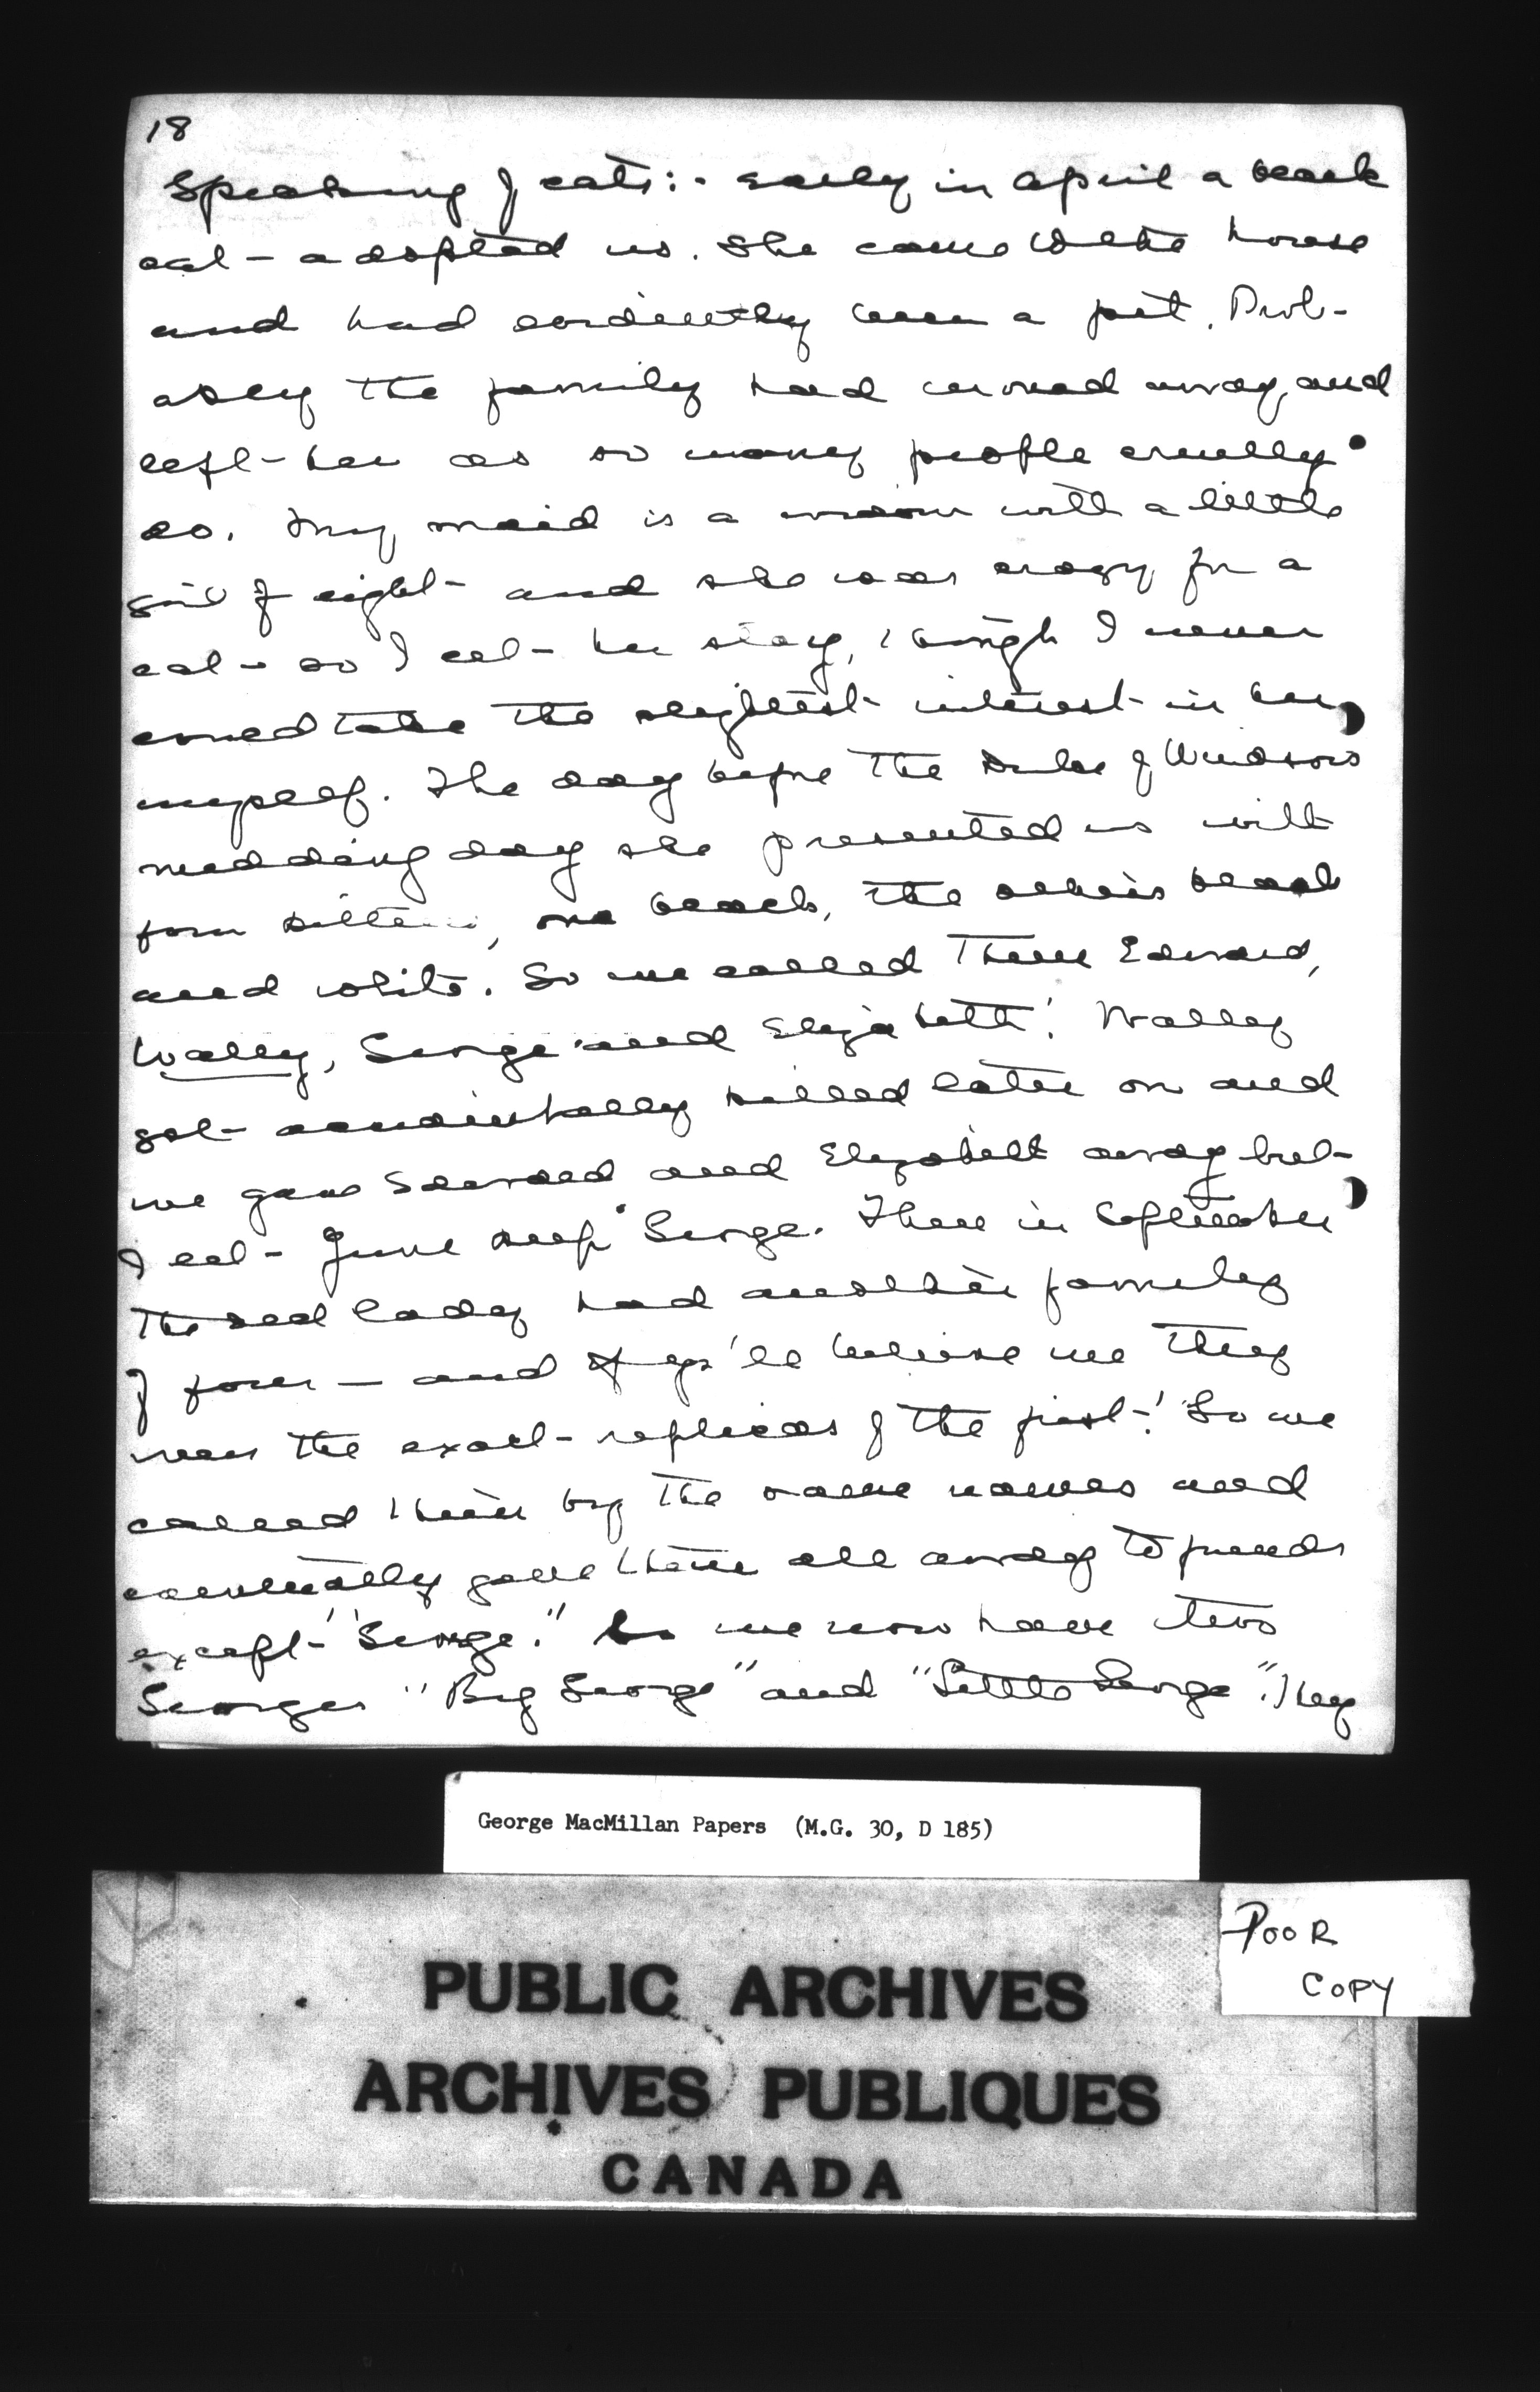 18
Speaking of cats:- early in April a black
cat - adopted us. She came to the house
and had evidently been a pet. Prob-
ably the family had moved away and
left - her as so many people cruelly
do. My maid is a widow with a little
girl of eight - and she was crazy for a
cat - so I let - her stay, though I never
could take the slightest interest in her
myself. The day before the Duke of Windsor's
wedding day she presented us with
four kittens, one black, the others black
and white. So we called them Edward,
Wally, George and Elizabeth! Wally
got - accidentally killed later on and
we gave Edward and Elizabeth away but -
I let - June keep George. Then in September
the old lady had another family
of four — and if yo'll believe me they
were the exact - replicas of the first -! So we
called them by the same names and
eventually gave them all away to friends
except - "George." So we now have two
Georges "Big George" and "Little George". They
George MacMillan Papers (M.G. 30, D 185)
POOR
COPY
PUBLIC ARCHIVES
ARCHIVES PUBLIQUES
CANADA